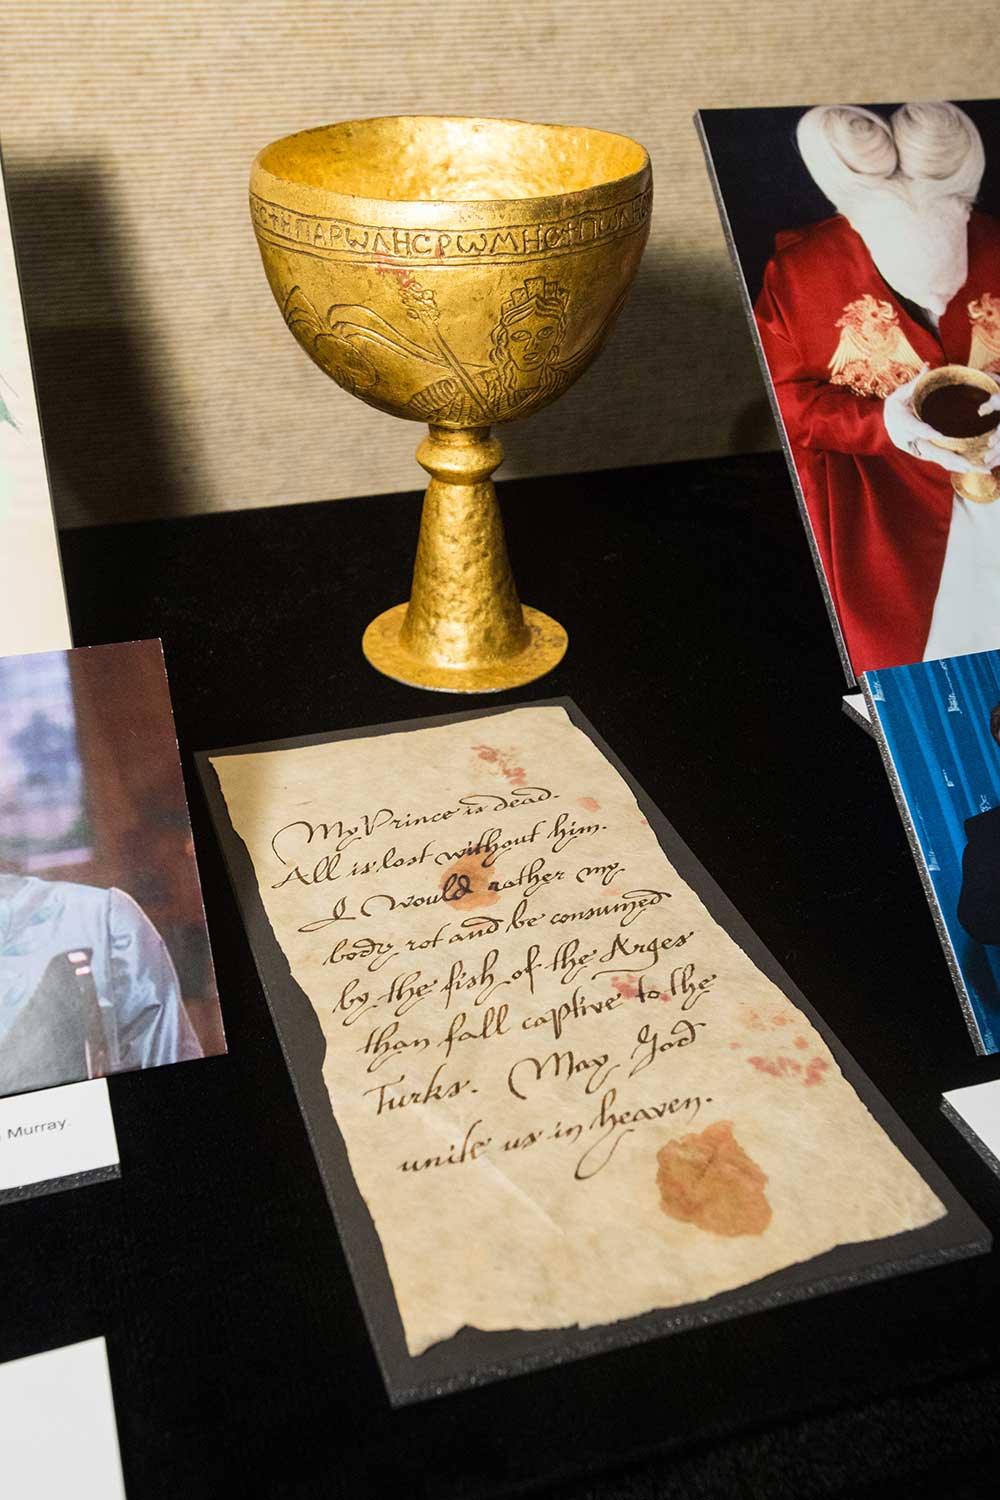 ΗϹ✝ΗΠΑΡѠΛΗϹΡѠΜΗϹ✝ΠѠΛΗϹ
My Prince is dead.
All is lost without him.
I would rather my
body rot and be consumed
by the fish of the Arges
than fall captive to the
Turks. May God
unite us in heaven.
Murray.